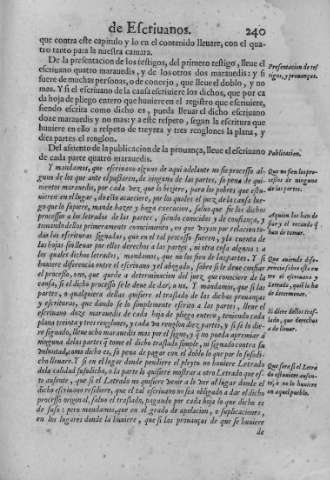 de Escriuanos. 240
que contra este capitulo y lo en el contenido lleuare, con el qua
tro tanto para la nuestra camara.
De la presentacion de los testigos, del primero testigo, lleue el
escriuano quatro marauedis, y de los otros dos marauedis: y si
fuere de muchas personas, o de concejo, que lleue el doblo, y no
mas. Y si el escriuano de la causa escriuiere los dichos, que por ca
da hoja de pliego entero que huuiere en el registro que escriuiere,
siendo escrita como dicho es, pueda lleuar el dicho escriuano
doze marauedis y no mas: y a este respeto, segun la escritura que
huuiere en ello a respeto de treynta y tres renglones la plana, y
diez partes el renglon.
Presentacion de tes
tigos, y prouanças.
Del assiento de la publicacion de la prouança, lleue el escriuano
de cada parte quatro marauedis.
Publicacion.
Y mandamos, que escriuano alguno de aqui adelante no fie processo al-
guno de los que ante el passaren, de ninguna de las partes, so pena de qui-
nientos marauedis, por cada vez que lo hiziere, para los pobres que estu-
uieren en el lugar, do esto acaeciere, por los quales el juez de la causa lue-
go que lo supiere, mande hazer y haga execucion, saluo que fie los dichos
processos a los letrados de las partes, siendo conocidos y de confiança, y
tomando dellos primeramente conocimiento, en que vayan por relacion to-
das las escrituras signadas, que en el tal processo fueren, y de cuenta de
las hojas sin lleuar por ellos derechos a las partes, ni otra cosa alguna: a
los quales dichos letrados, mandamos, que no los fien de las partes. Y si
huuiere diferencia entre el escriuano y el abogado, sobre si se deue confiar
el processo, o no, que quede a determinacion del juez que conociere de la
causa, si el dicho processo se le deue de dar, o no. Y mandamos, que si las
partes, o qualquiera dellas quisiere el traslado de las dichas prouanças
y escrituras, que dando se lo simplemente escrito a las partes, lleue el
escriuano doze marauedis de cada hoja de pliego entero, teniendo cada
plana treinta y tres renglones, y cada vn renglon diez partes, y si se lo die-
re signado, lleue ocho marauedis mas por el signo, y que no pueda apremiar a
ninguna de las partes que tome el dicho traslado simple, ni signado contra su
voluntad, como dicho es, so pena de pagar con el doblo lo que por lo susodi-
cho lleuare. Y si en el lugar donde pendiere el pleyto no huuiere Letrado
de la calidad susodicha, o la parte lo quisiere mostrar a otro Letrado que es-
te ausente, que si el Letrado no quisiere venir a lo ver al lugar donde el
dicho escriuano residiere, que el tal escriuano no sea obligado a dar el dicho
processo original, saluo el traslado, pagando por cada hoja lo que dicho es
de suso: pero mandamos, que en el grado de apelacion, o suplicaciones,
en los lugares donde la huuiere, que si las prouanças de que se huuiere
de
Que no fien los pro-
cessos de ninguna
de las partes.
A quien los han de
fiar y el recaudo que
han de tomar.
Que auiendo dife-
rencia sobre esto en
tre el escriuano y
Letrado, quien lo ha
de determinar.
Si diere dellos tras-
lado, que derechos
a de lleuar.
Que sera si el Letra
do estuuiere ausen-
te, o no lo huuiere
en aquel pueblo.